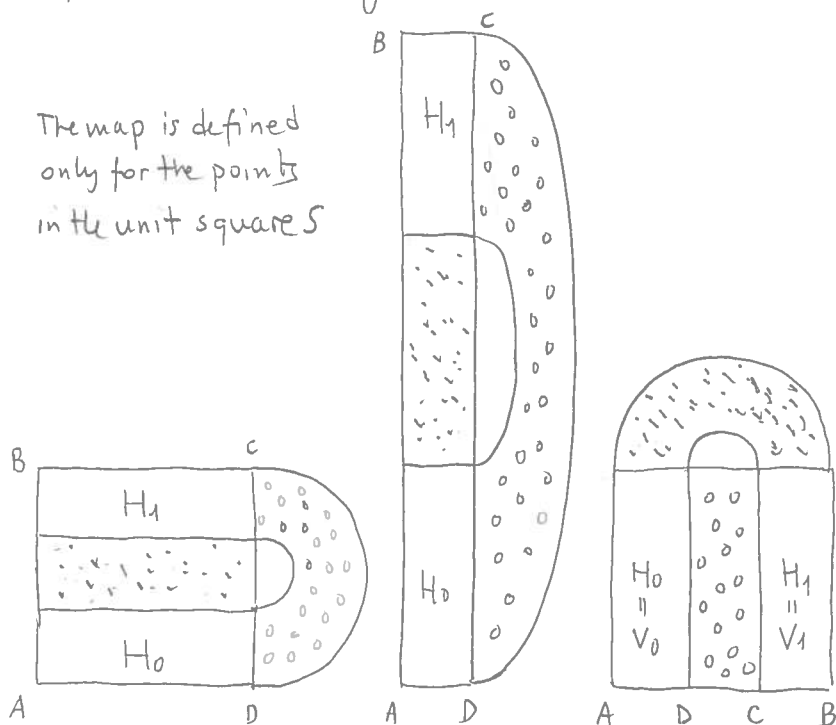 The map is defined
only for the points
in the unit square S
B C
H1
H0
A D
B C
H1
H0
A D
H0 H1
= =
V0 V1
A D C B